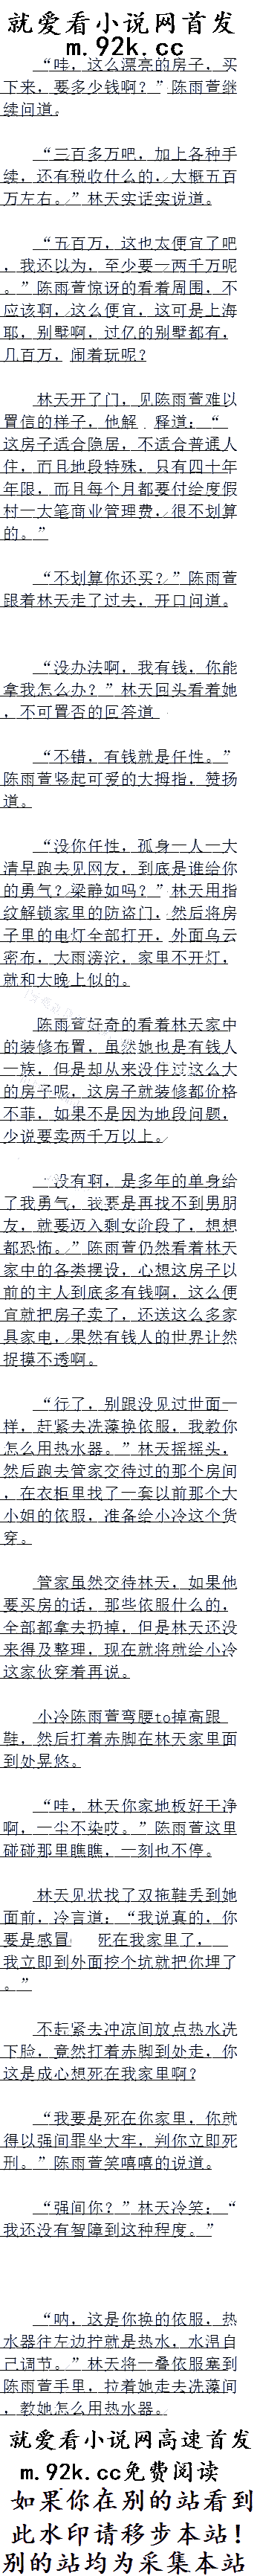 就爱看小说网首发
m.92k.cc
“哇，这么漂亮的房子，买
下来，要多少钱啊？”陈雨萱继
续问道。
“三百多万吧，加上各种手
续，还有税收什么的，大概五百
万左右。”林天实话实说道。
“五百万，这也太便宜了吧
，我还以为，至少要一两千万呢
。”陈雨萱惊讶的看着周围，不
应该啊，这么便宜，这可是上海
耶，别墅啊，过亿的别墅都有，
几百万，闹着玩呢？
林天开了门，见陈雨萱难以
置信的样子，他解 释道：“
这房子适合隐居，不适合普通人
住，而且地段特殊，只有四十年
年限，而且每个月都要付给度假
村一大笔商业管理费，很不划算
的。”
“不划算你还买？”陈雨萱
跟着林天走了过去，开口问道。
“没办法啊，我有钱，你能
拿我怎么办？”林天回头看着她
，不可置否的回答道
“不错，有钱就是任性。”
陈雨萱竖起可爱的大拇指，赞扬
道。
“没你任性，孤身一人一大
清早跑去见网友，到底是谁给你
的勇气？梁静如吗？”林天用指
纹解锁家里的防盗门，然后将房
子里的电灯全部打开，外面乌云
密布，大雨滂沱，家里不开灯，
就和大晚上似的。
陈雨萱好奇的看着林天家中
的装修布置，虽然她也是有钱人
一族，但是却从来没住过这么大
的房子呢，这房子就装修都价格
不菲，如果不是因为地段问题，
少说要卖两千万以上。
“没有啊，是多年的单身给
了我勇气，我要是再找不到男朋
友，就要迈入剩女阶段了，想想
都恐怖。”陈雨萱仍然看着林天
家中的各类摆设，心想这房子以
前的主人到底多有钱啊，这么便
宜就把房子卖了，还送这么多家
具家电，果然有钱人的世界让然
捉摸不透啊。
“行了，别跟没见过世面一
样，赶紧去洗藻换依服，我教你
怎么用热水器。”林天摇摇头，
然后跑去管家交待过的那个房间
，在衣柜里找了一套以前那个大
小姐的依服，准备给小冷这个货
穿。
管家虽然交待林天，如果他
要买房的话，那些依服什么的，
全部都拿去扔掉，但是林天还没
来得及整理，现在就将就给小冷
这家伙穿着再说。
小冷陈雨萱弯腰to掉高跟
鞋，然后打着赤脚在林天家里面
到处晃悠。
“哇，林天你家地板好干净
啊，一尘不染哎。”陈雨萱这里
碰碰那里瞧瞧，一刻也不停。
林天见状找了双拖鞋丢到她
面前，冷言道：“我说真的，你
要是感冒 死在我家里了，
我立即到外面挖个坑就把你埋了
。”
不赶紧去冲凉间放点热水洗
下脸，竟然打着赤脚到处走，你
这是成心想死在我家里啊？
“我要是死在你家里，你就
得以强间罪坐大牢，判你立即死
刑。”陈雨萱笑嘻嘻的说道。
“强间你？”林天冷笑：“
我还没有智障到这种程度。”
“呐，这是你换的依服，热
水器往左边拧就是热水，水温自
己调节。”林天将一叠依服塞到
陈雨萱手里，拉着她走去洗藻间
，教她怎么用热水器。
就爱看小说网高速首发
m.92k.cc免费阅读
如果你在别的站看到
此水印请移步本站！
别的站均为采集本站